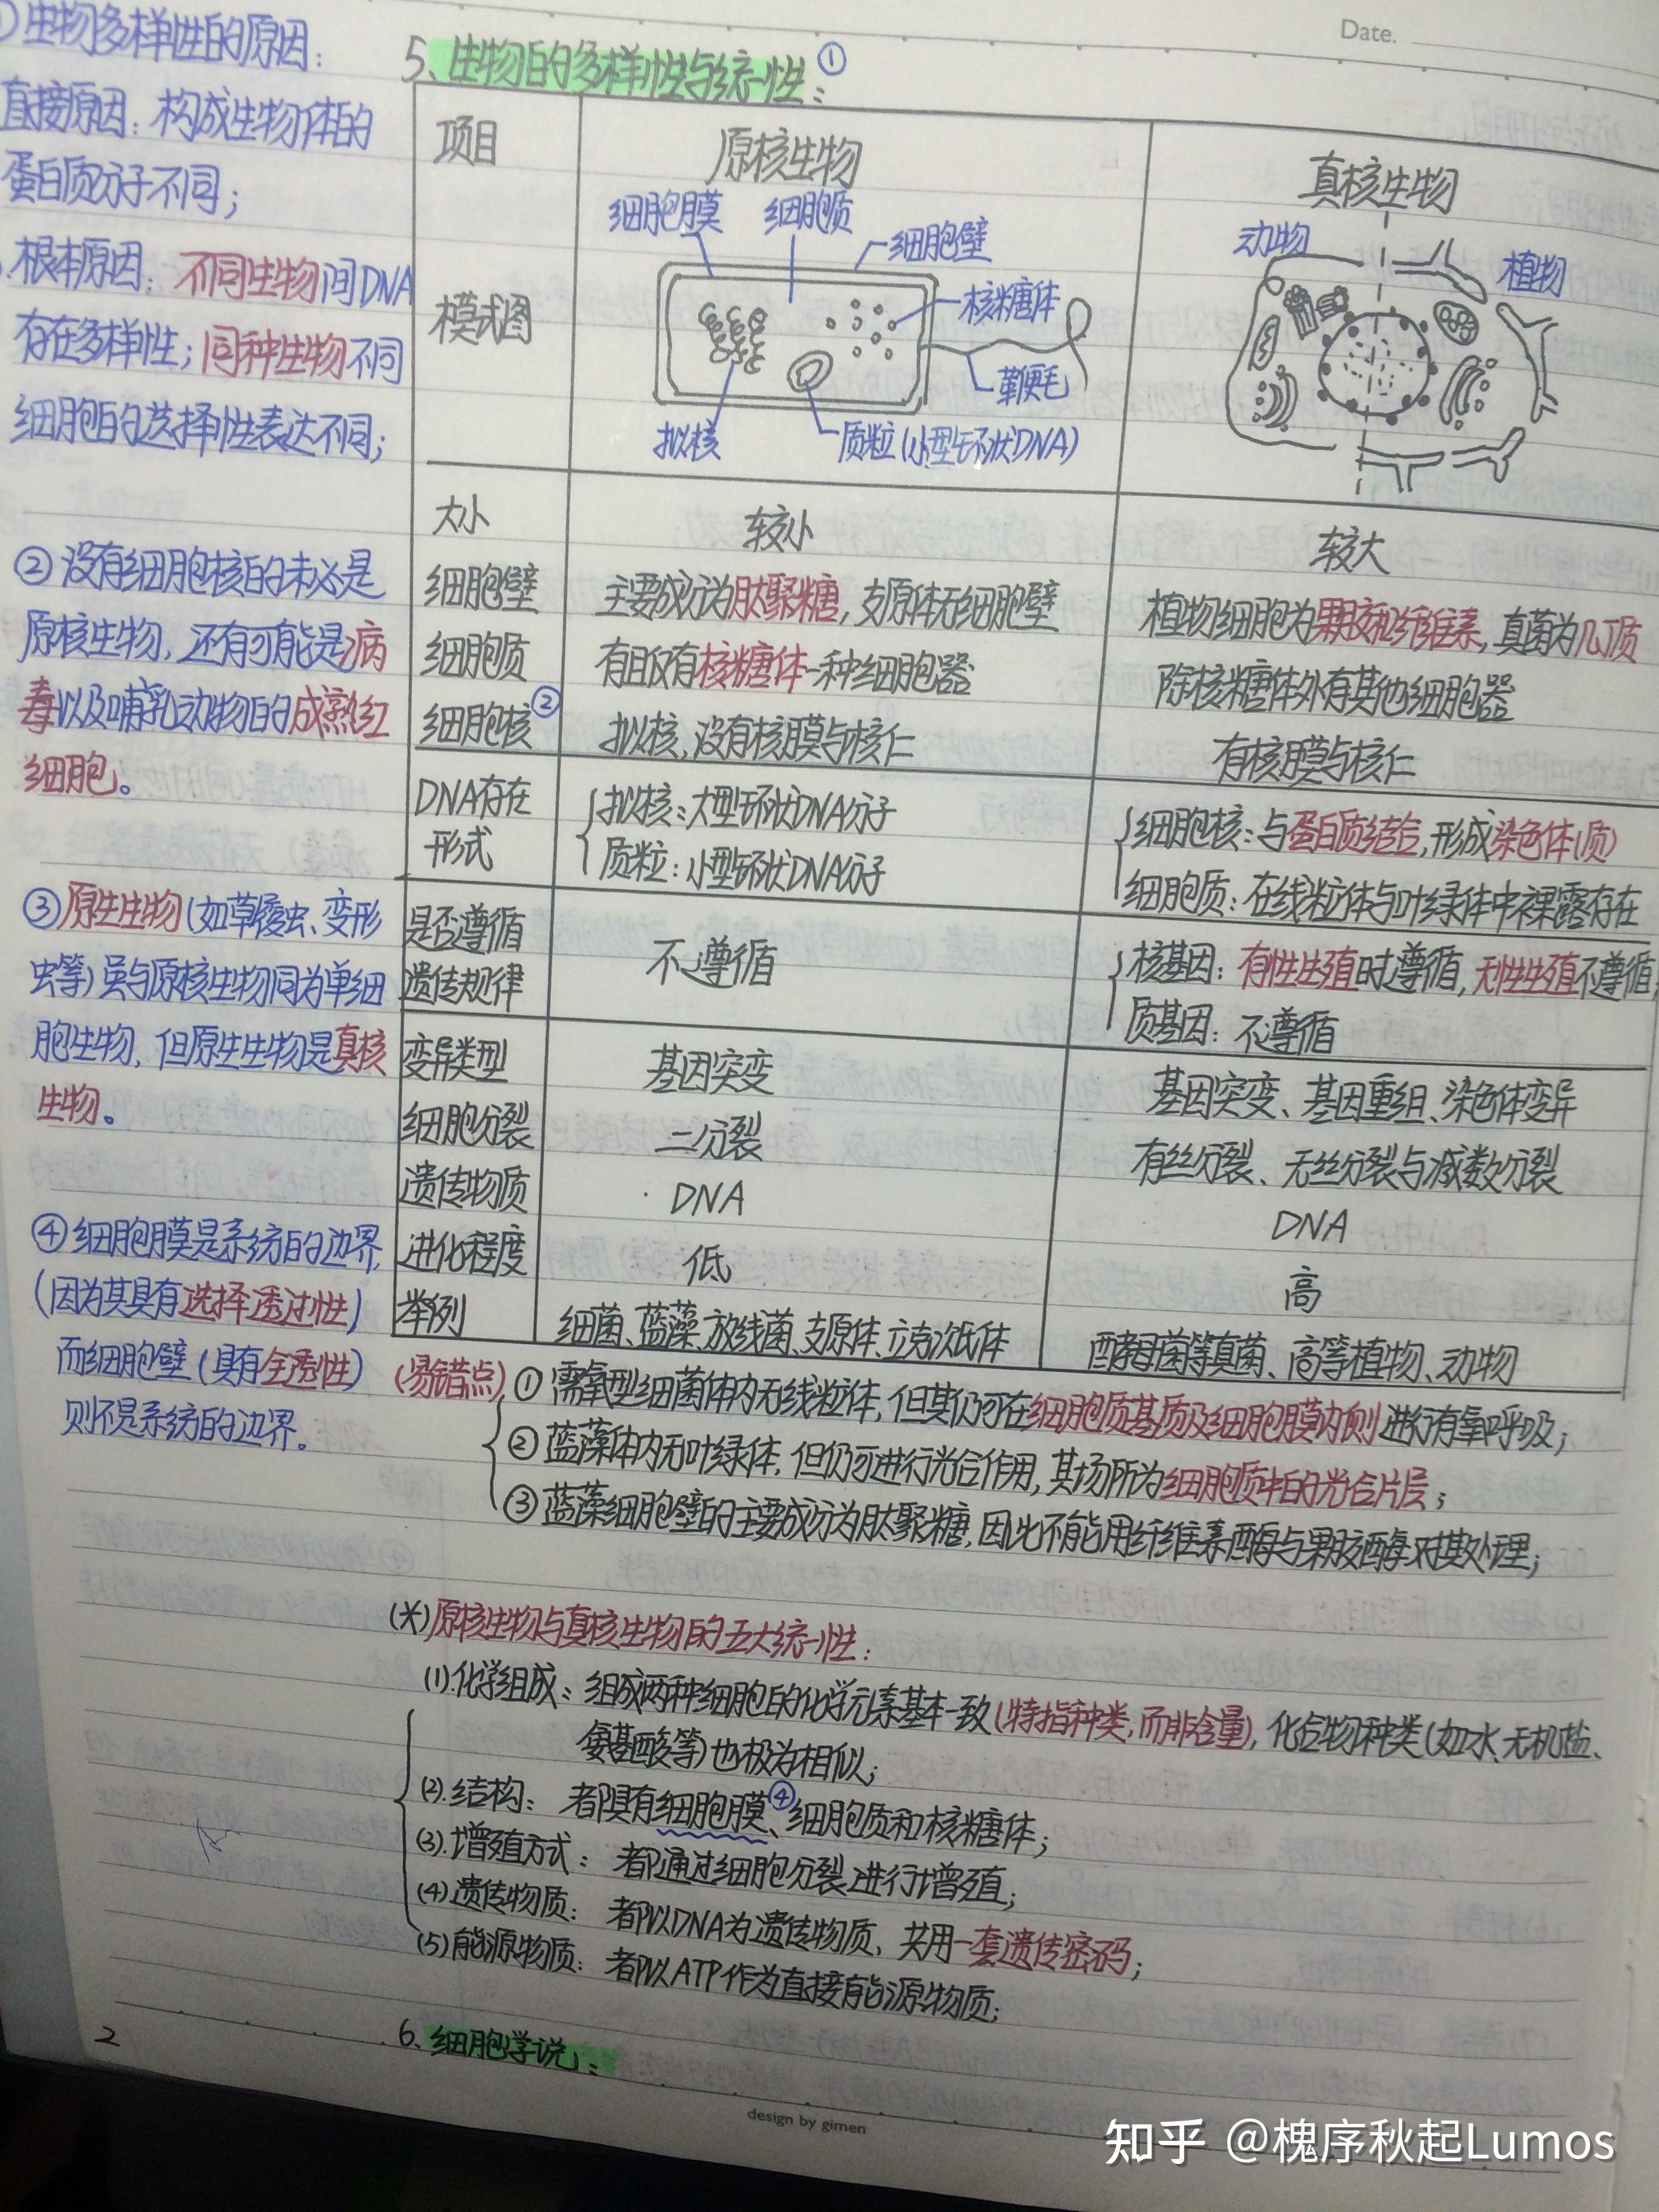 Date.
①生物多样性的原因：
直接原因：构成生物体的
蛋白质分子不同；
根本原因：不同生物间DNA
存在多样性；同种生物不同
细胞的选择性表达不同；
②没有细胞核的未必是
原核生物，还有可能是病
毒以及哺乳动物的成熟红
细胞。
③原生生物(如草履虫、变形
虫等)虽与原核生物同为单细
胞生物，但原生生物是真核
生物。
④细胞膜是系统的边界，
(因为其具有选择透过性)
而细胞壁(具有全透性)
则不是系统的边界。
5、生物的多样性与统一性：①
项目 原核生物 真核生物
模式图
细胞膜 细胞质 细胞壁
核糖体
鞭毛
拟核 质粒(小型环状DNA)
动物 植物
大小 较小 较大
细胞壁 主要成分为肽聚糖，支原体无细胞壁 植物细胞为果胶和纤维素，真菌为几丁质
细胞质 有且仅有核糖体一种细胞器 除核糖体外有其他细胞器
细胞核② 拟核，没有核膜与核仁 有核膜与核仁
DNA存在
形式
拟核：大型环状DNA分子
质粒：小型环状DNA分子
细胞核：与蛋白质结合，形成染色体(质)
细胞质：在线粒体与叶绿体中裸露存在
是否遵循
遗传规律
不遵循
核基因：有性生殖时遵循，无性生殖不遵循；
质基因：不遵循
变异类型 基因突变 基因突变、基因重组、染色体变异
细胞分裂 二分裂 有丝分裂、无丝分裂与减数分裂
遗传物质 DNA DNA
进化程度 低 高
举例 细菌、蓝藻、放线菌、支原体、立克次氏体 酵母菌等真菌、高等植物、动物
(易错点)①需氧型细菌体内无线粒体，但其仍可在细胞质基质及细胞膜内侧进行有氧呼吸；
②蓝藻体内无叶绿体，但仍可进行光合作用，其场所为细胞质中的光合片层；
③蓝藻细胞壁的主要成分为肽聚糖，因此不能用纤维素酶与果胶酶对其处理；
(*)原核生物与真核生物的五大统一性：
(1).化学组成：组成两种细胞的化学元素基本一致(特指种类，而非含量)，化合物种类(如水、无机盐、
氨基酸等)也极为相似；
(2).结构：都具有细胞膜④、细胞质和核糖体；
(3).增殖方式：都通过细胞分裂进行增殖；
(4).遗传物质：都以DNA为遗传物质，共用一套遗传密码；
(5).能源物质：都以ATP作为直接能源物质；
6、细胞学说：
2
design by gimen
知乎 @槐序秋起Lumos